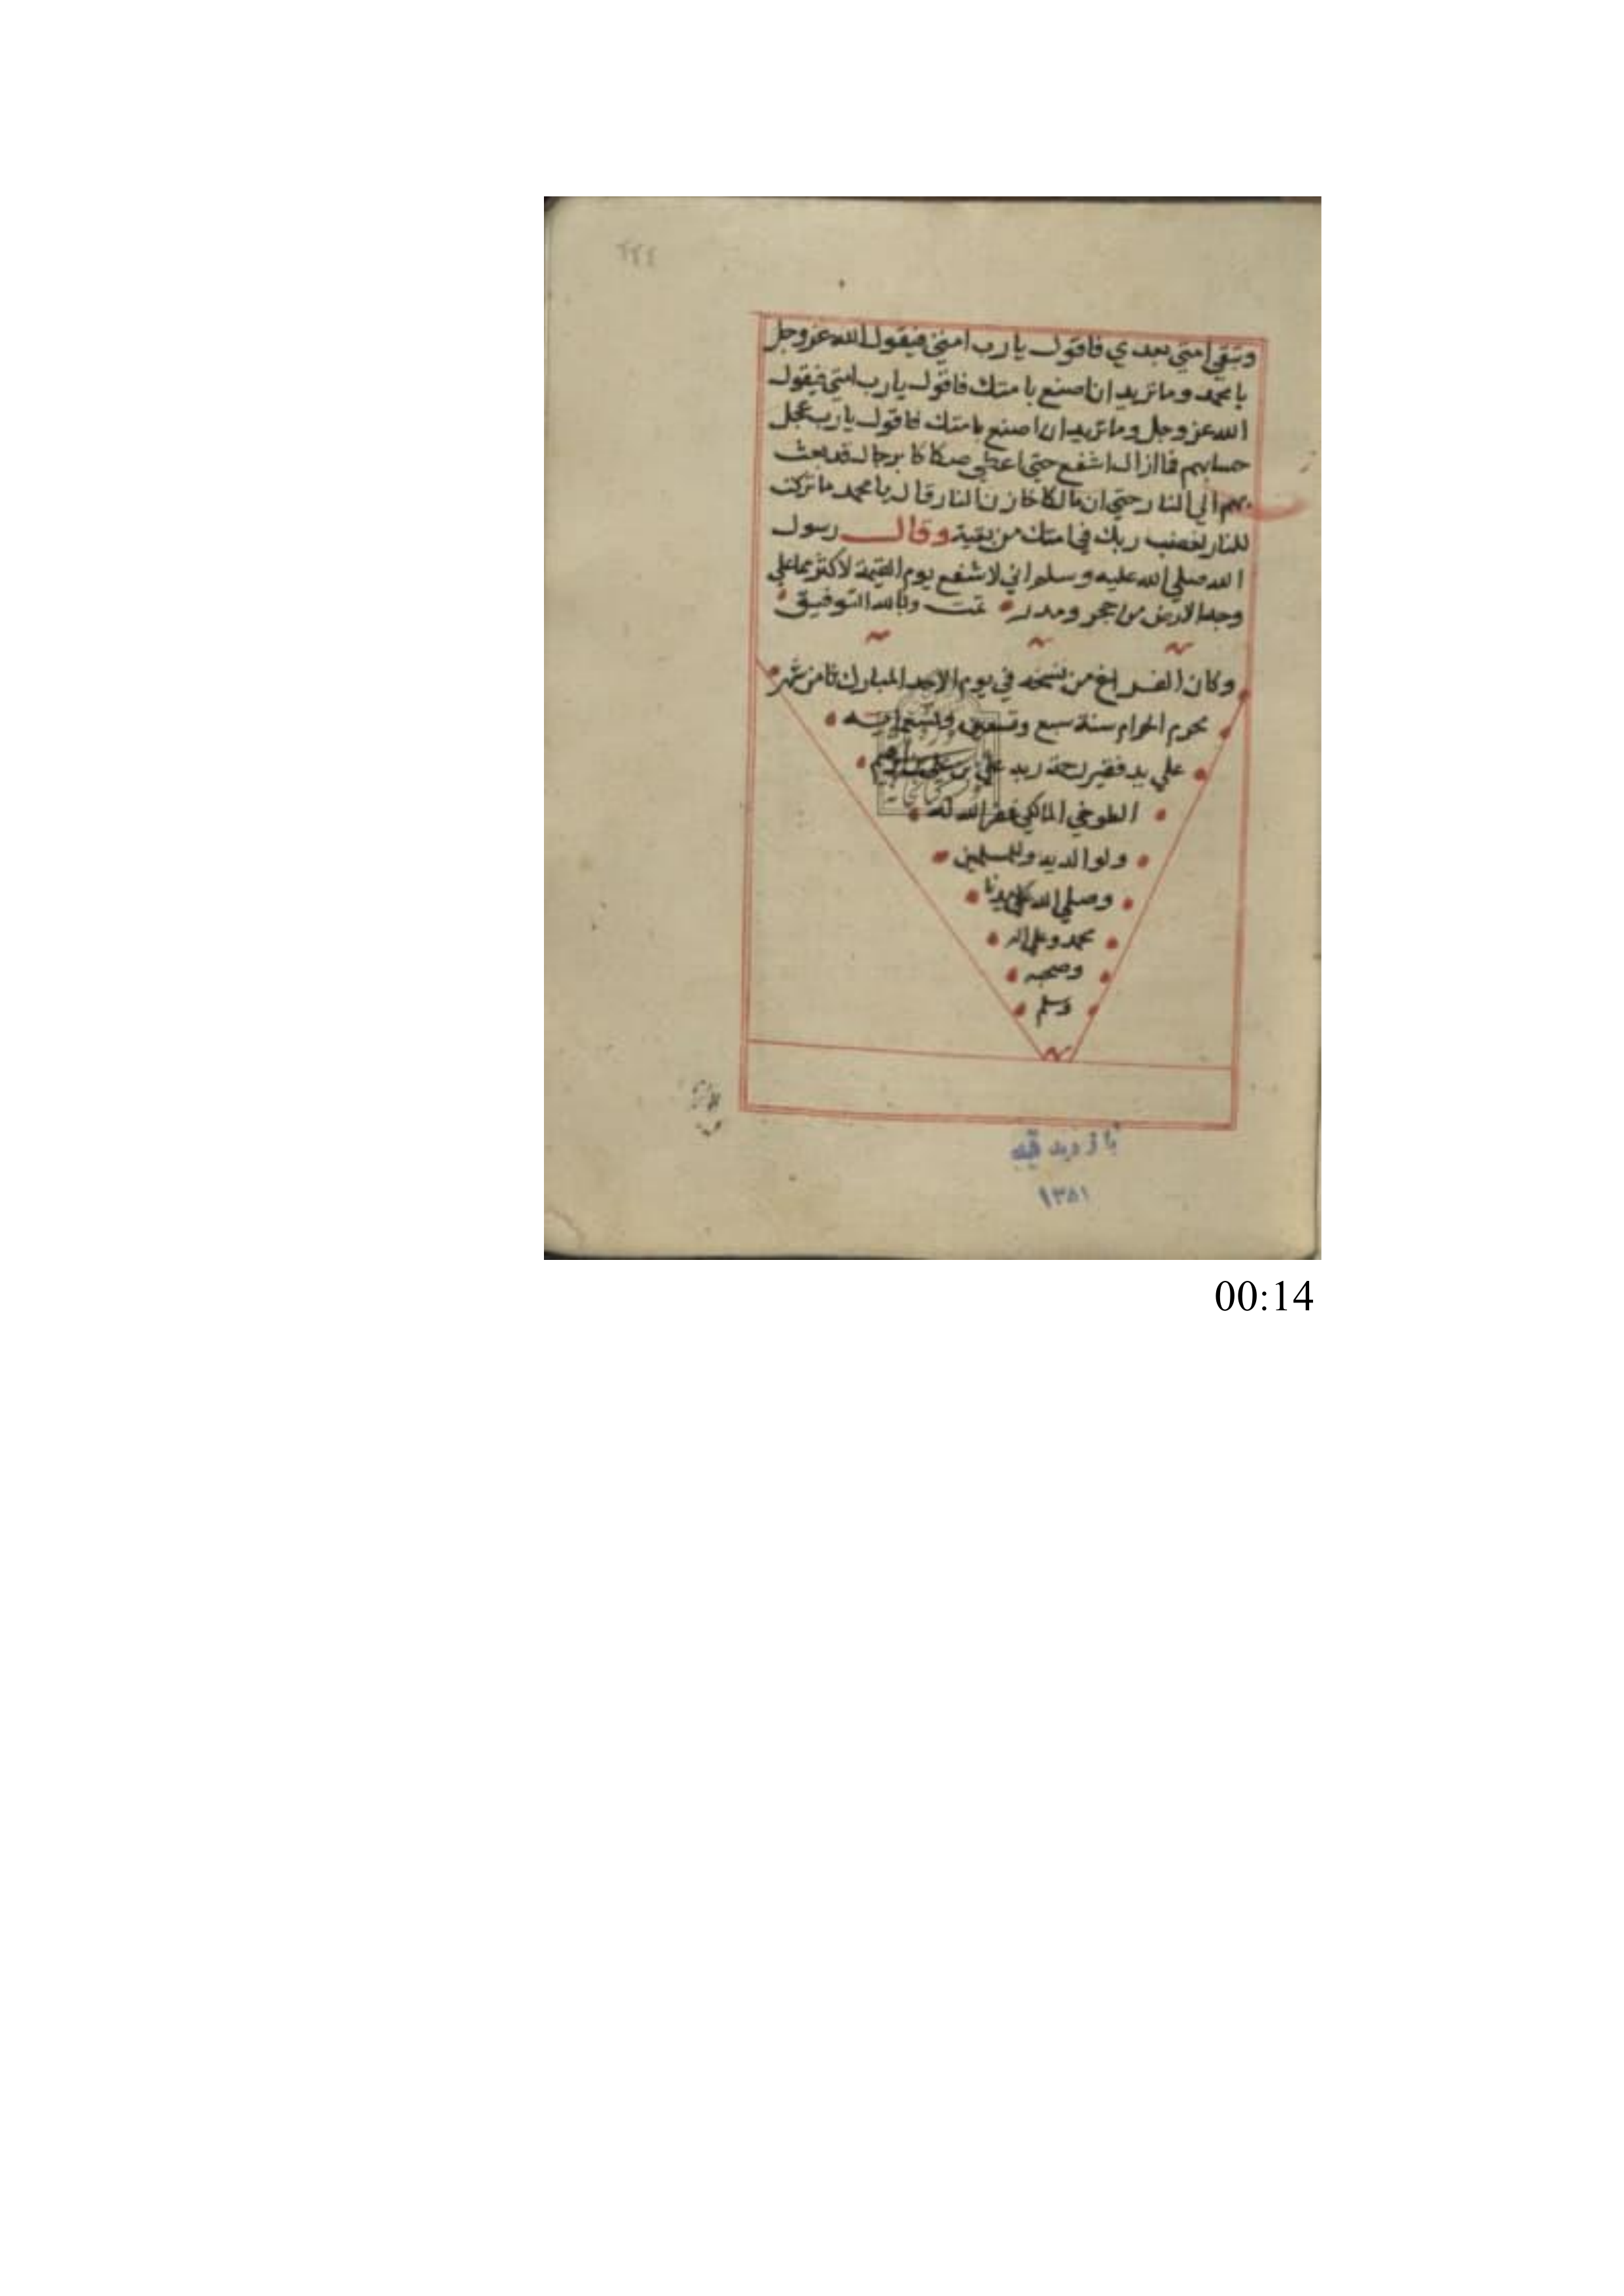 ٢٢٤
وتبقي امتي بعدي فاقول يا رب امتي فيقول الله عز وجل
يا محمد وما تريد ان اصنع بامتك فاقول يا رب امتي فيقول
الله عز وجل وما تريد ان اصنع بامتك فاقول يا رب عجل
حسابهم فما ازال اشفع حتي اعطي صكاكا برجال قد بعث
بهم الي النار حتي ان مالكا خازن النار قال يا محمد ما تركت
للنار لغضب ربك في امتك من بقية وقال رسول
الله صلي الله عليه وسلم اني لاشفع يوم القيمة لاكثر مما علي
وجه الارض من حجر ومدر تمت وبالله التوفيق
وكان الفراغ من نسخه في يوم الاحد المبارك ثامن شهر
محرم الحرام سنة سبع وتسعين
علي يد فقير رحمة ربه علي بن
المالكي غفر الله له
ولوالديه وللمسلمين
وصلي الله علي سيدنا
محمد وعلي اله
وصحبه
وسلم
بازدید
۱۳۸۱
00:14